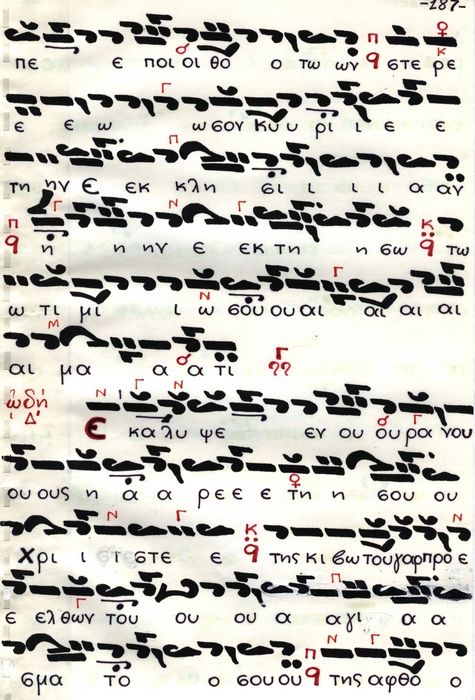 -187-
πε ε ποι οι θο ο τω ων στε ρε
ε ε ω ω σον κυ υ ρι ι ε ε
τη ην ε εκ κλη σι ι ι ι α αν
η η ην ε εκ τη η σω τω
ω τι μι ι ω σου ου αι αι αι αι
αι μα α α τι
ᾠδή Δ΄
Ε κα λυ ψε εν ου ου ρα νου
ου ους η α α ρε ε ε τη η σου ου
Χρι ι ι στε ε ε της κι βω του γαρ προ ε
ε ελ θων του ου ου α αγι α α
σμα το ο σου ου της αφθο ο